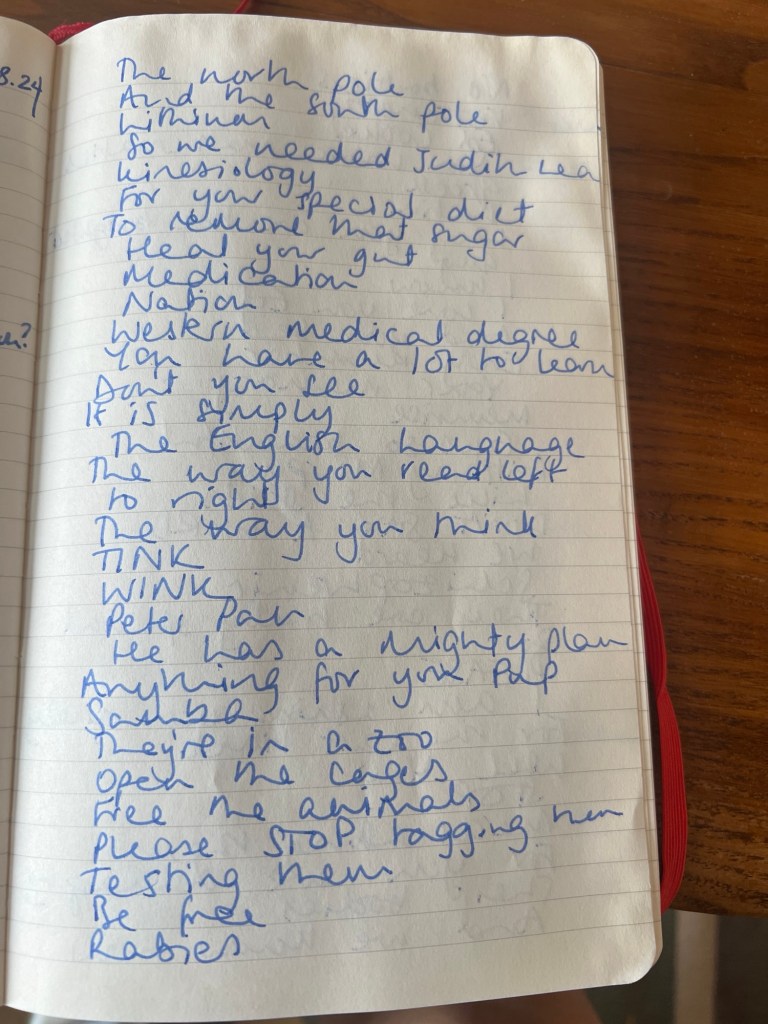 8.24
The north pole
And the south pole
Lithium
So we needed Judith Lea
Kinesiology
For your special diet
To remove that sugar
Heal your gut
Medication
Nation
Western medical degree
You have a lot to learn
Dont you see
It is simply
The English Language
The way you read left
to right
The way you think
TINK
WINK
Peter Pan
He has a mighty plan
Anything for your Pap
Samba
They're in a zoo
Open the cages
Free the animals
Please STOP tagging them
Testing them
Be free
Rabies